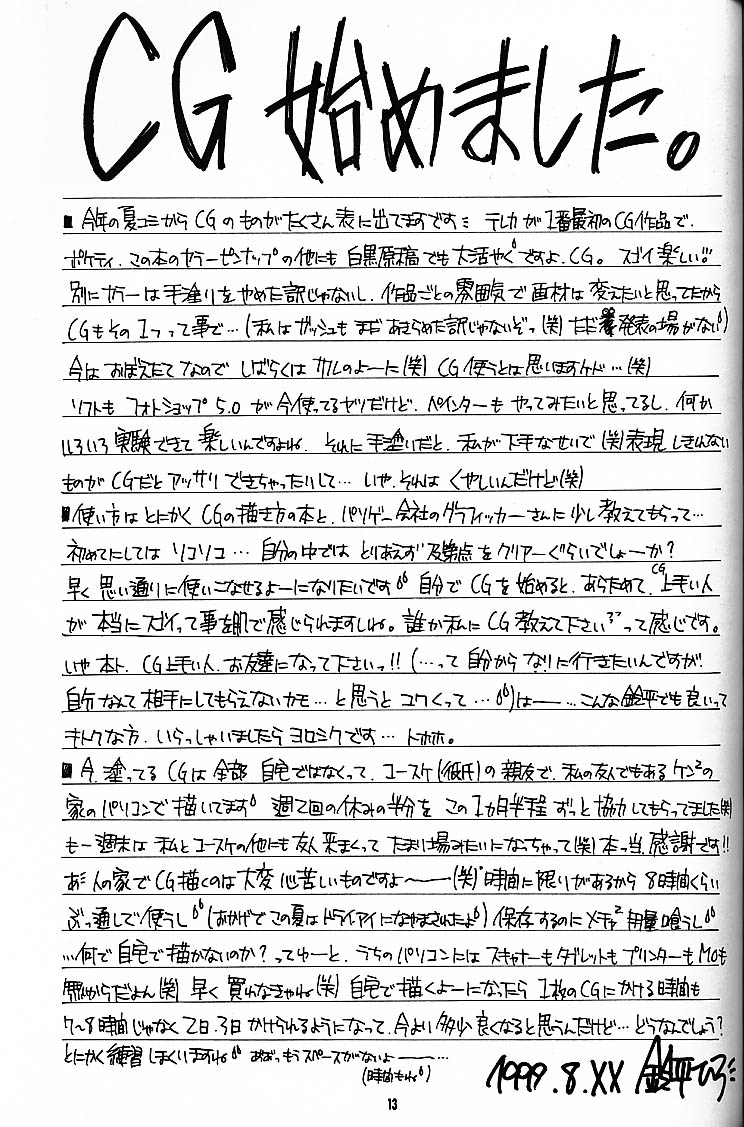 CG 始めました。
■ 今年の夏コミからCGのものがたくさん表に出てますです ミ テレカが1番最初のCG作品で、
ポケティ、この本のカラーピンナップの他にも白黒原稿でも大活やくですよ、CG。 スゴイ楽しい!!
別にカラーは手塗りをやめた訳じゃないし、作品ごとの雰囲気で画材は変えたいと思ってたから
CGもその1つって事で…(私はガッシュもまだあきらめた訳じゃないぞっ(笑)ただ発表の場がない)
今はおぼえたてなので しばらくは サルのよーに(笑) CG使うとは思いますケド…(笑)
ソフトも フォトショップ 5.0 が今使ってるヤツだけど、ペインターも やってみたいと思ってるし、何か
いろいろ実験できて 楽しいんですよね、それに手塗りだと、私が下手なせいで(笑)表現しきれない
ものがCGだと アッサリ できちゃったいして… いや、それは くやしいんだけど(笑)
■使い方はとにかく CGの描き方の本と、パソゲー会社のグラフィッカーさんに少し教えてもらって…
初めてにしては ソコソコ … 自分の中では とりあえず 及第点をクリアーぐらいでしょーか?
早く 思い通りに使いこなせるよーになりたいです 自分で CGを始めると、あらためて、CG上手い人
が 本当にスゴイって事を肌で感じられますしね。誰か私に CG 教えて下さい〜って感じです。
いや ホント、CG上手い人、お友達になって下さいっ!! (…って 自分から なりに行きたいんですが、
自分なんて 相手にしてもらえないカモ…と思うと コワくって …)は――…こんな鈴平でも良いって
キトクな方、いらっしゃいましたら ヨロシクです… トホホ。
■ 今、塗ってる CGは全部 自宅ではなくって、コースケ(彼氏)の親友で、私の友人でもあるケン²の
家のパソコンで描いてます 週2回の休みの半分を この1ヵ月半程 ずっと協力してもらってました(笑)
もー週末は 私とコースケの他にも友人来まくって たまり場みたいになっちゃって(笑)本っ当、感謝です!!
人の家でCG描くのは大変 心苦しいものですよ〜――(笑)時間に限りがあるから 8時間くらい
ぶっ通しで使うし (おかげで この夏はドライアイになやまされたよ) 保存するのにメチャ² 用量喰うし
…何で 自宅で描かないのか?ってゆーと、うちの パソコンには スキャナーもタブレットもプリンターもMOも
無いからだよん(笑) 早く 買わなきゃね(笑) 自宅で描くよーになったら 1枚のCGにかける時間も
7〜8時間じゃなく 2日、3日 かけられるようになって、今よい多少良くなると思うんだけど…どうなんでしょう?
とにかく練習しまくいますね ああっもうスペースがないよ――…
(時間もね)
1999.8.XX 鈴平ひろ
13